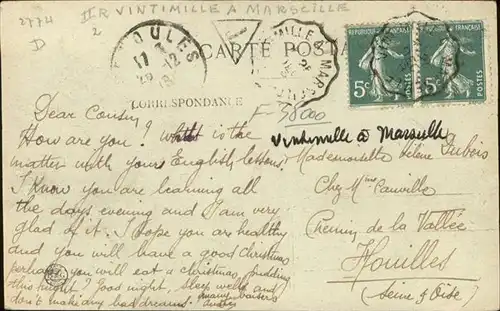 2774
D
II R VINTIMILLE A MARSEILLE
2
JOULES
17
29-12
CARTE POSTA
CORRESPONDANCE
REPUBLIQUE FRANCAISE
5c
POSTES
REPUBLIQUE FRANCAISE
5c
POSTES
F 50.00
Vintimille à Marseille
Dear Cousin,
How are you? What is the
matter with yours English lessons.
I know you are learning all
the days evening and I am very
glad of it. I hope you are healthy
and you will have a good christmas
perhaps you will eat a christmas, pudding
this night? Good night, sleep well and
don't make any bad dreams.
many
Mademoiselle Hélène Dubois
Chez Mme Cauville
Chemin de la Vallée
Houilles
(Seine & Oise)